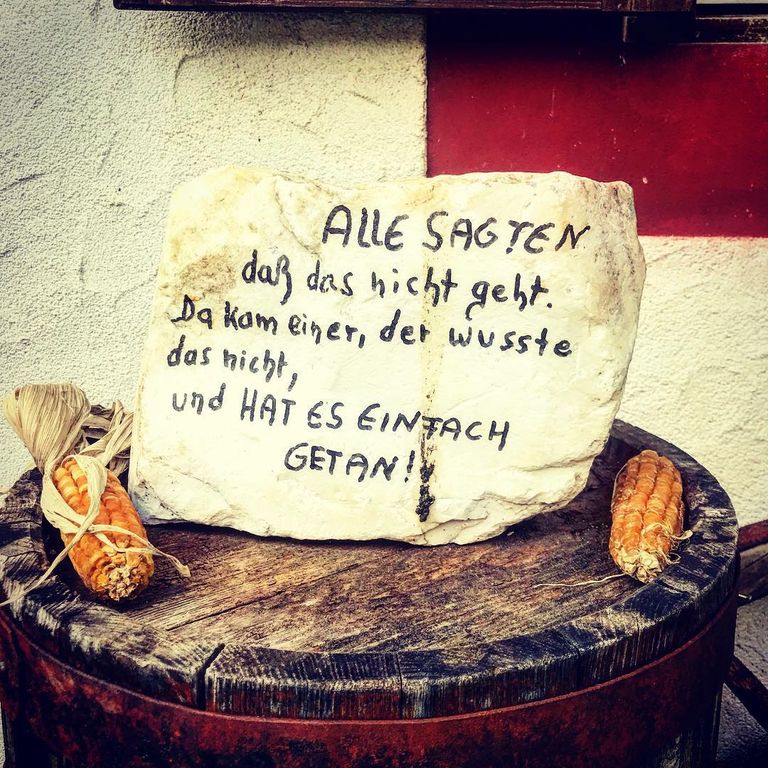 ALLE SAGTEN
daß das nicht geht.
Da kam einer, der wusste
das nicht,
und HAT ES EINFACH
GETAN!